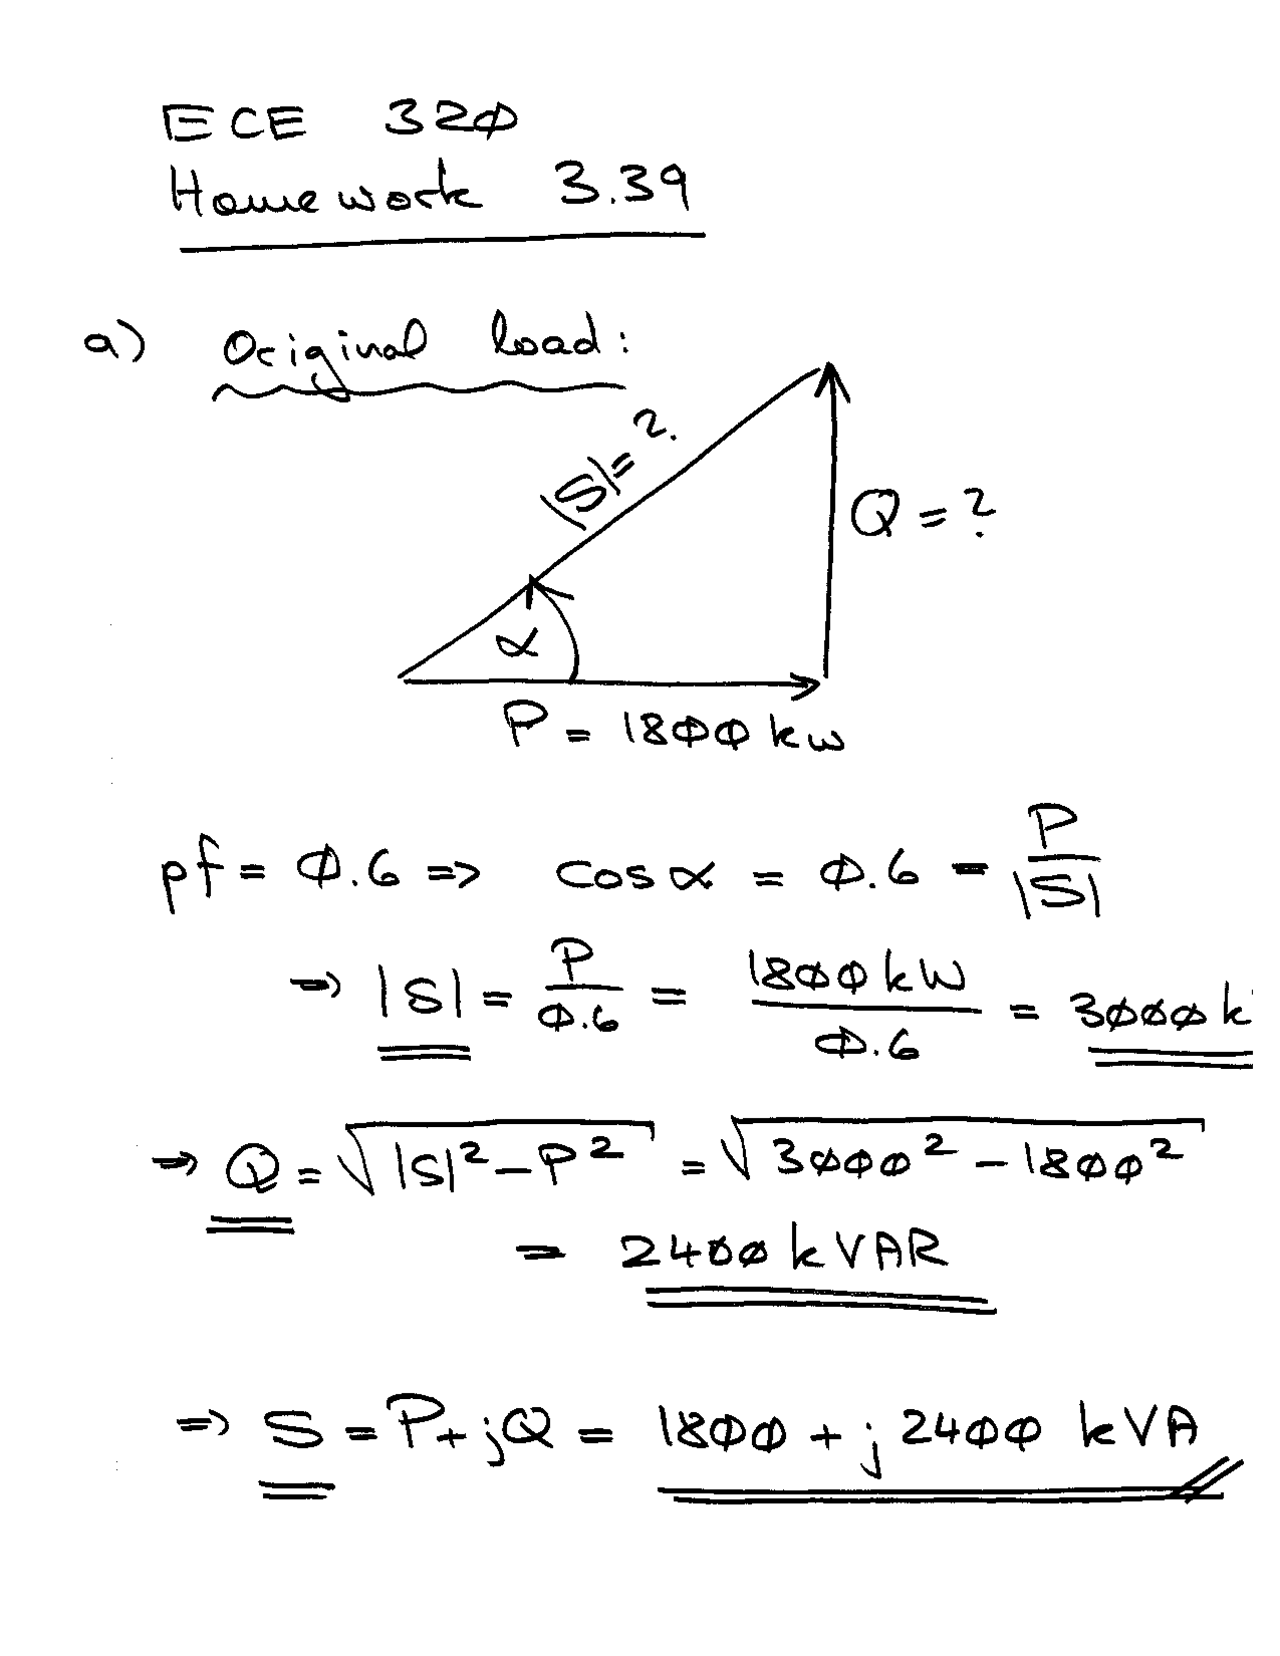 ECE 320
Homework 3.39
a) Original load:
|S| = ?
Q = ?
α
P = 1800 kw
pf = 0.6 => cos α = 0.6 = P/|S|
=> |S| = P/0.6 = 1800 kW/0.6 = 3000 k
=> Q = √(|S|² - P²) = √(3000² - 1800²)
= 2400 kVAR
=> S = P + jQ = 1800 + j 2400 kVA